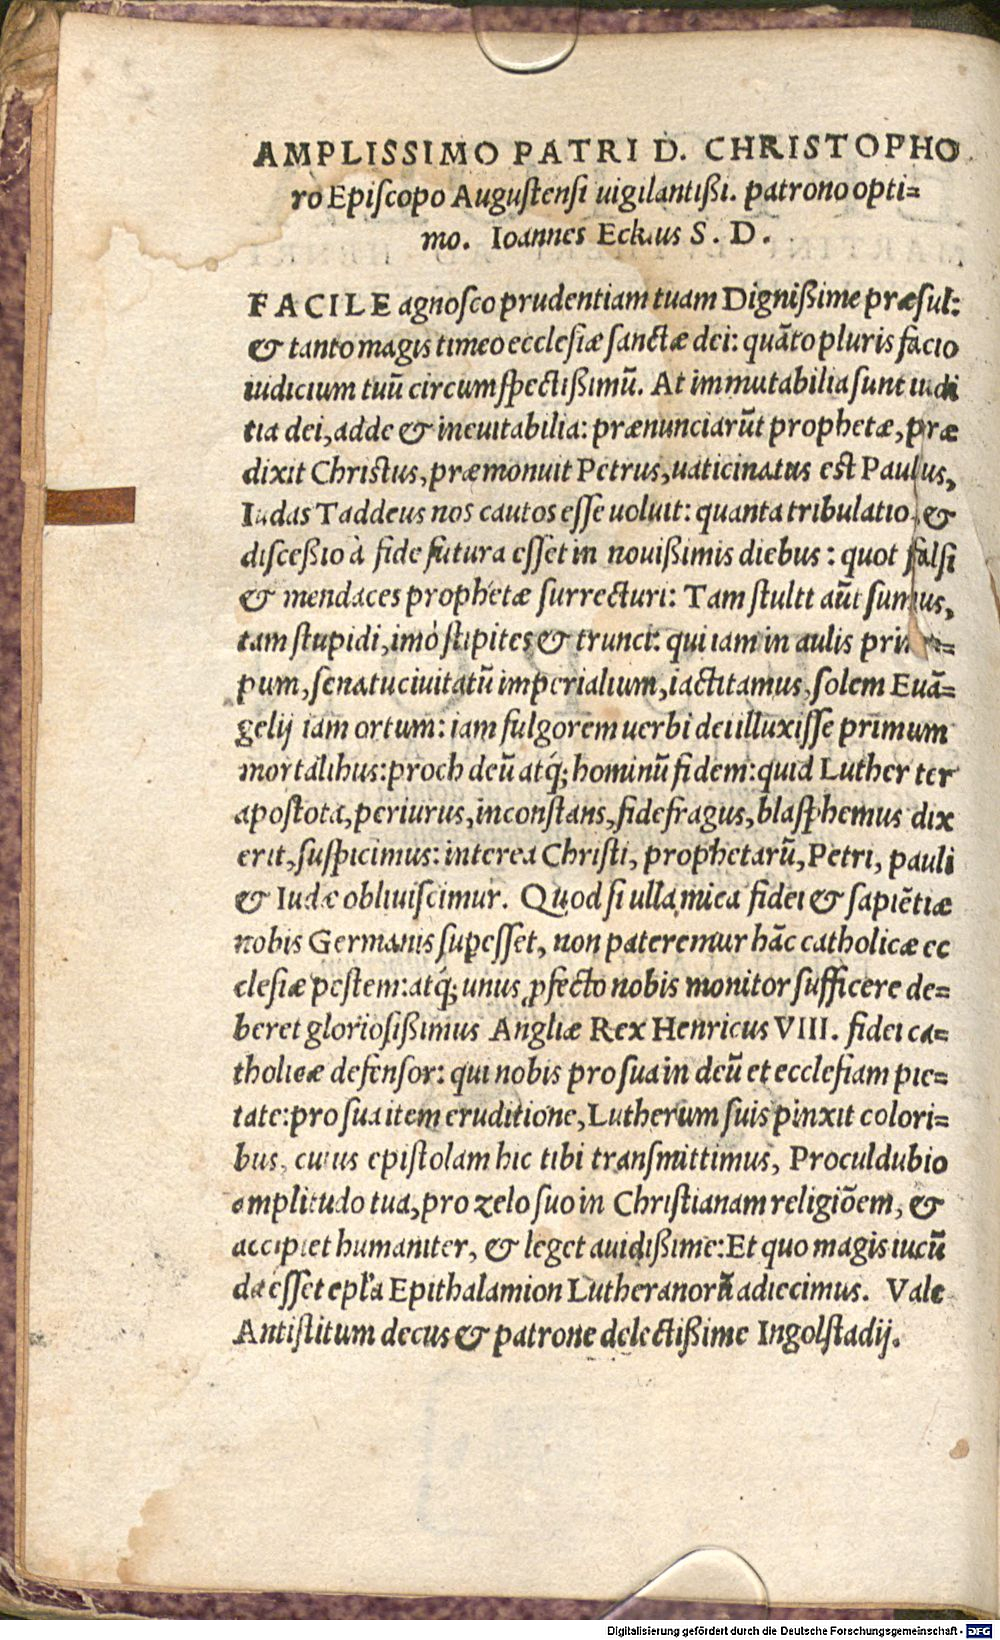 AMPLISSIMO PATRI D. CHRISTOPHO
ro Episcopo Augustensi uigilantißi. patrono opti=
mo. Ioannes Eckius S. D.
FACILE agnosco prudentiam tuam Dignißime præsul:
& tanto magis timeo ecclesiæ sanctæ dei: quãto pluris facio
iudicium tuũ circumspectißimũ. At immutabilia sunt iudi
tia dei, adde & ineuitabilia: prænunciarũt prophetæ, præ
dixit Christus, præmonuit Petrus, uaticinatus est Paulus,
Iudas Taddeus nos cautos esse uoluit: quanta tribulatio, &
disceßio à fide futura esset in nouißimis diebus: quot falsi
& mendaces prophetæ surrecturi: Tam stulti aũt sumus,
tam stupidi, imò stipites & trunci: qui iam in aulis prin=
pum, senatu ciuitatũ imperialium, iactitamus, solem Euã=
gelij iam ortum: iam fulgorem uerbi dei illuxisse primum
mortalibus: proch deũ atq́; hominũ fidem: quid Luther ter
apostota, periurus, inconstans, fidefragus, blasphemus dix
erit, suspicimus: interea Christi, prophetarũ, Petri, pauli
& Iudæ obliuiscimur. Quod si ulla mica fidei & sapiẽtiæ
nobis Germanis supesset, non pateremur hãc catholicæ ec
clesiæ pestem: atq́; unus ꝓfecto nobis monitor sufficere de=
beret gloriosißimus Angliæ Rex Henricus VIII. fidei ca=
tholicæ defensor: qui nobis pro sua in deũ et ecclesiam pie=
tate: pro sua item eruditione, Lutherum suis pinxit colori=
bus, cuius epistolam hic tibi transmittimus, Proculdubio
amplitudo tua, pro zelo suo in Christianam religiõem, &
accipiet humaniter, & leget auidißime: Et quo magis iucũ
da esset epl'a Epithalamion Lutheranorũ adiecimus. Vale
Antistitum decus & patrone delectißime Ingolstadij.
Digitalisierung gefördert durch die Deutsche Forschungsgemeinschaft - DFG